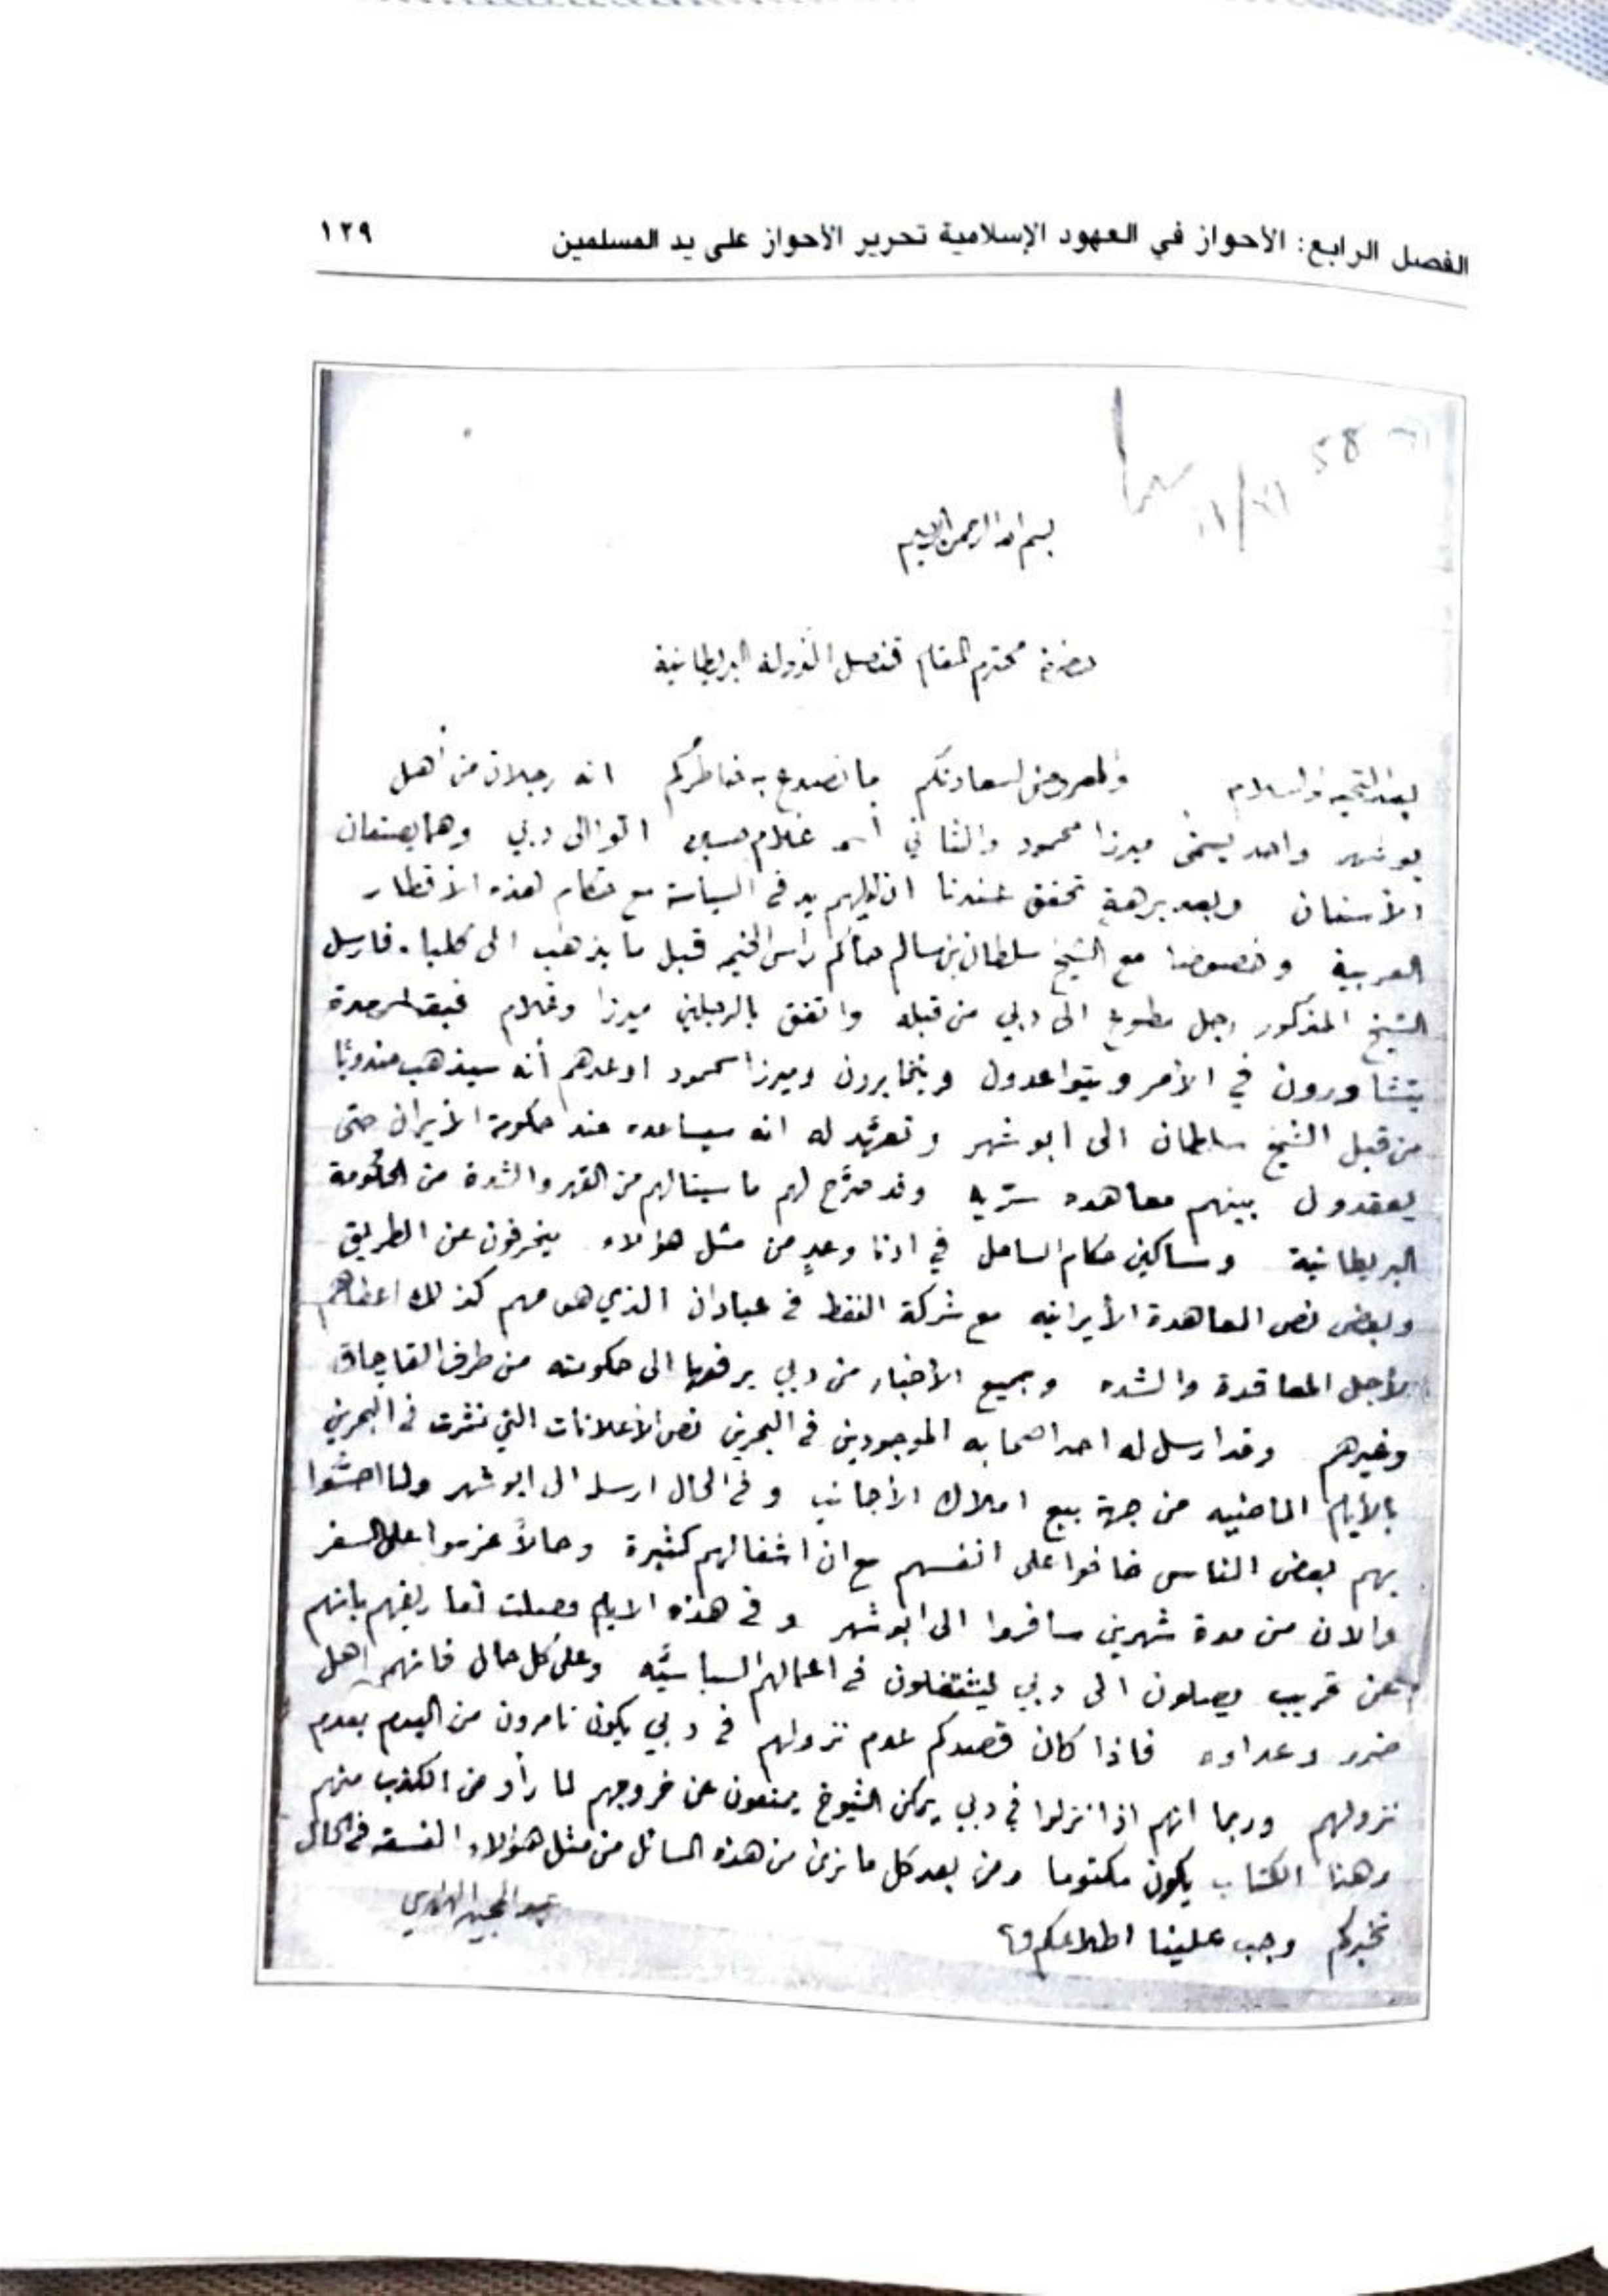 الفصل الرابع: الأحواز في العهود الإسلامية تحرير الأحواز على يد المسلمين ١٢٩
58
بسم الله الرحمن الرحيم
حضرة محترم المقام قنصل الدولة البريطانية
بعد التحية والسلام والمعروض لسعادتكم ما نصدع به خاطركم انه رجلان من أهل
بوشهر واحد يسمى ميرزا محمود والثاني اسمه غلام حسين اتوا الى دبي وهما يصنعان
الأسنان وبعد برهة تحقق عندنا ان لهم يد في السياسة مع حكام هذه الأقطار
العربية وخصوصا مع الشيخ سلطان بن سالم حاكم راس الخيمه قبل ما يذهب الى كلبا. فارسل
الشيخ المذكور رجل مطوع الى دبي من قبله واتفق بالرجلين ميرزا وغلام مدة
يتشاورون في الأمر ويتواعدون ويتخابرون وميرزا محمود اوعدهم أنه سيذهب مندوبًا
من قبل الشيخ سلطان الى ابوشهر وتعهّد له انه سيساعده عند حكومة الأيران حتى
يعقدون بينهم معاهده سرّيه وقد صرّح لهم ما سينالهم من القهر والشدة من الحكومة
البريطانية ومساكين حكام الساحل في ادنا وعدٍ من مثل هؤلاء ينحرفون عن الطريق
وبعض نص المعاهدة الأيرانيه مع شركة النفط في عبادان الذي هو مهم كذلك اعطاهم
لأجل المعاقدة والشده وجميع الأخبار من دبي يرفعها الى حكومته من طرف القاچاق
وغيرهم وقد ارسل له احد اصحابه الموجودين في البحرين نص الأعلانات التي نشرت في البحرين
بالأيام الماضيه من جهة بيع املاك الأجانب وفي الحال ارسله الى ابوشهر ولما احسّوا
بهم بعض الناس خافوا على انفسهم مع ان اشغالهم كثيرة وحالاً عزموا على السفر
والان من مدة شهرين سافروا الى ابوشهر وفي هذه الايام وصلت تعاريفهم بانهم
عن قريب يصلون الى دبي ليشتغلون في اعمالهم السياسيّه وعلى كل حال فانهم اهل
ضرر وعداوه فاذا كان قصدكم عدم نزولهم في دبي يكون تامرون من اليوم بعدم
نزولهم وربما انهم اذا نزلوا في دبي يمكن الشيوخ يمنعون عن خروجهم لما رأو من الكذب منهم
وهذا الكتاب يكون مكتوما ومن بعد كل ما نرى من هذه المسائل من مثل هؤلاء الفسقه في الحال
نخبركم وجب علينا اطلاعكم